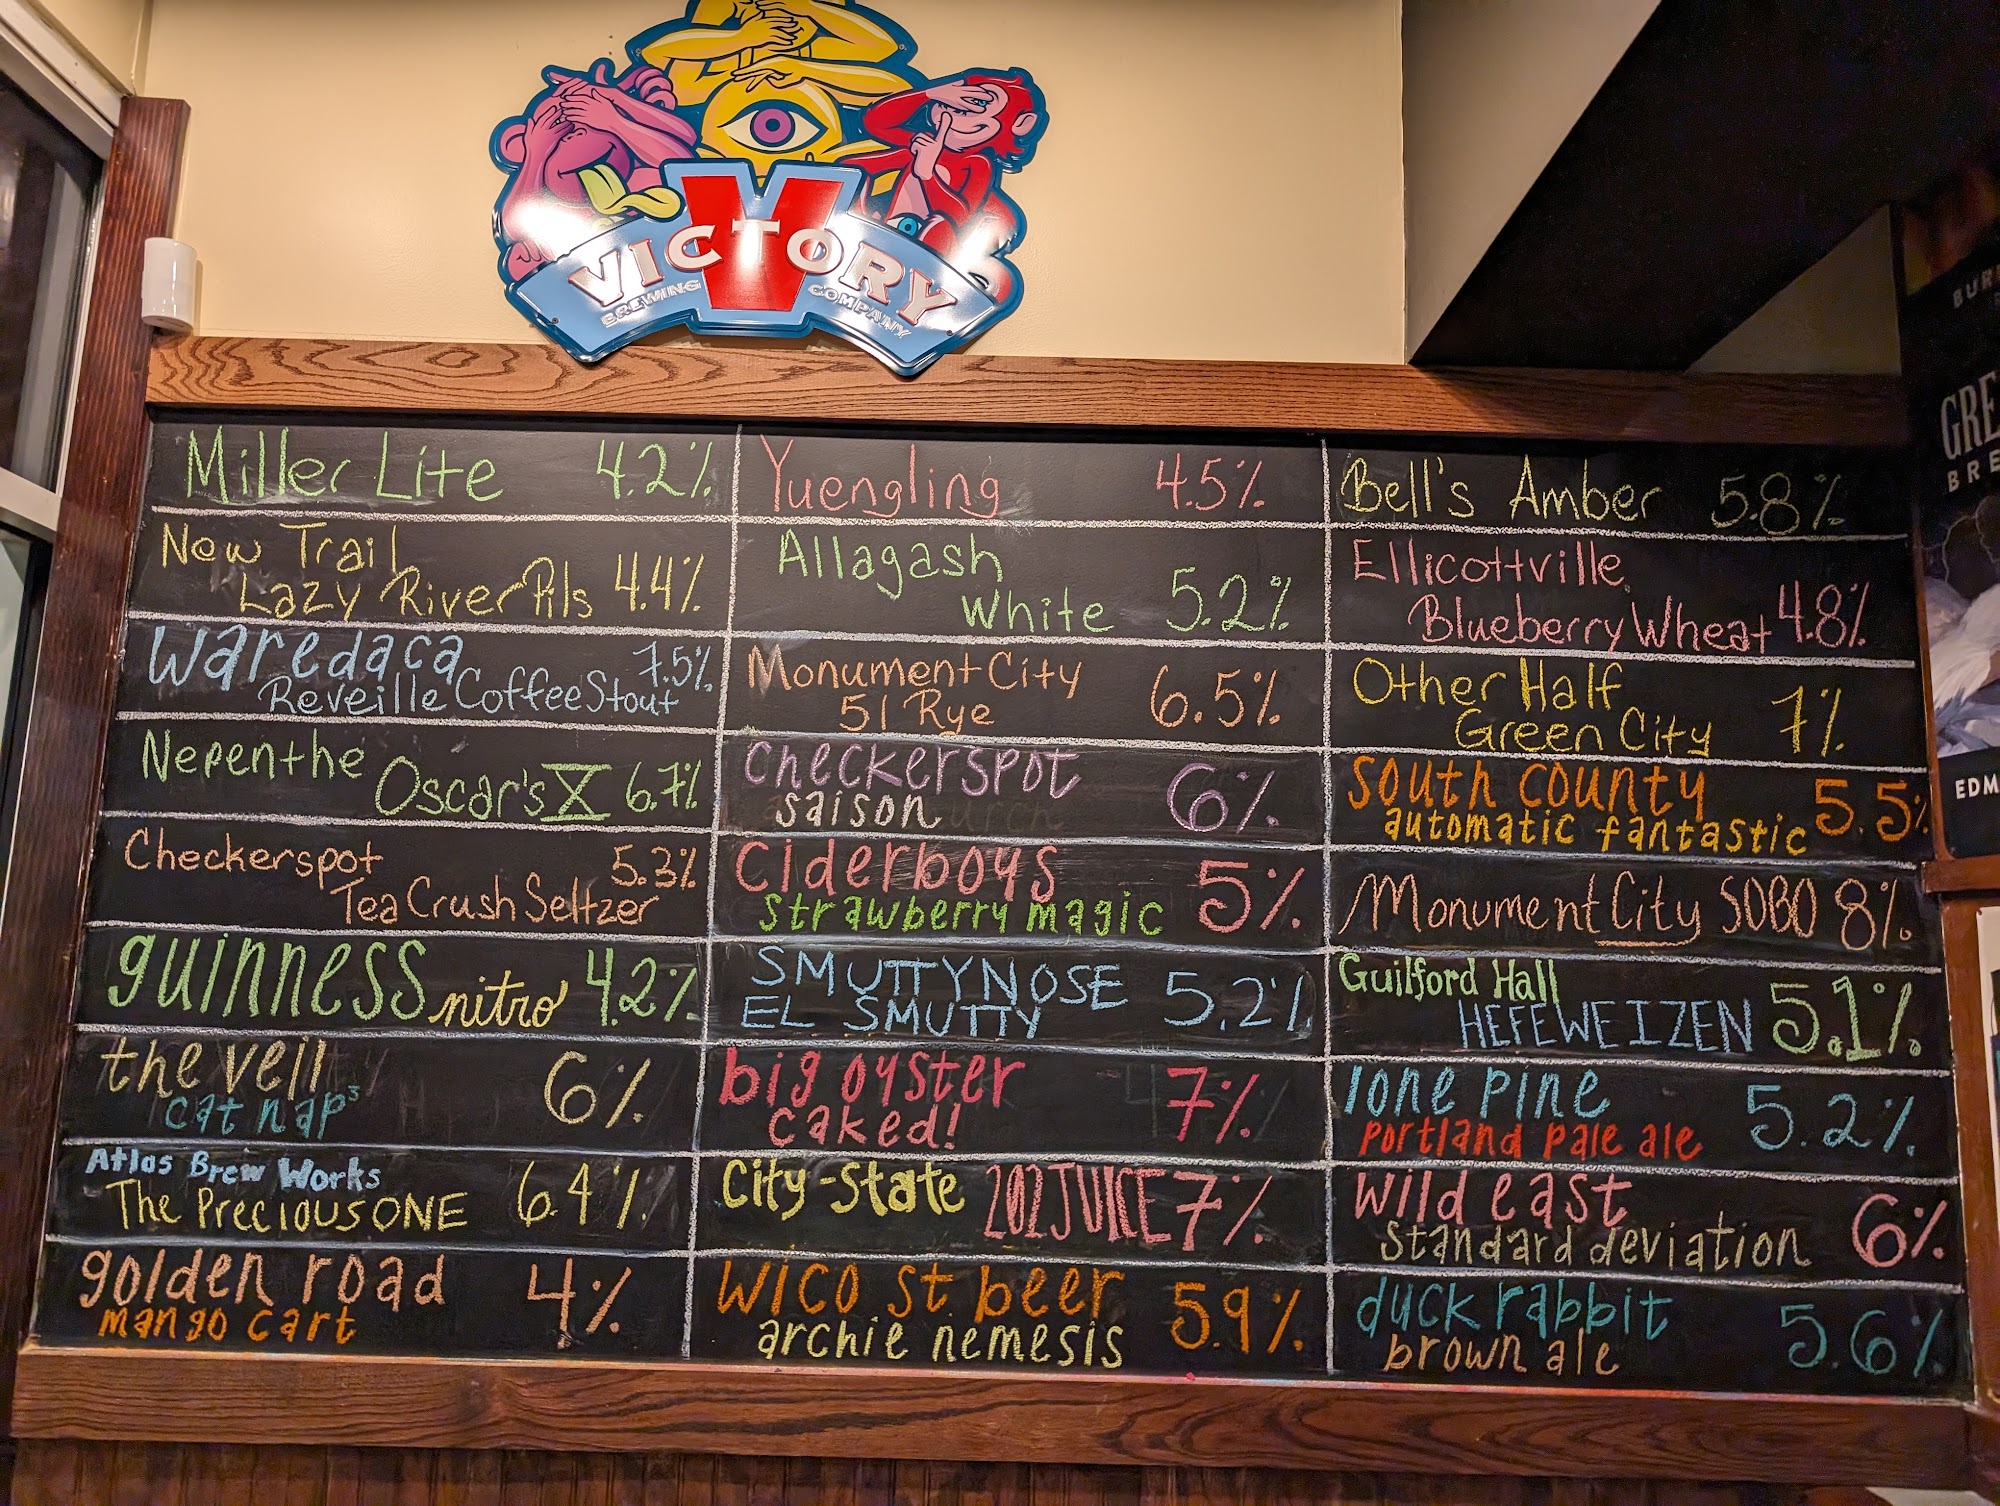 VICTORY
BREWING COMPANY
Miller Lite 4.2%
New Trail
Lazy River Pils 4.4%
Waredaca 7.5%
Reveille Coffee Stout
Nepenthe
Oscar's X 6.7%
Checkerspot 5.3%
Tea Crush Seltzer
guinness nitro 4.2%
the veil 6%
cat nap³
Atlas Brew Works
The Precious ONE 6.4%
golden road 4%
mango cart
Yuengling 4.5%
Allagash
White 5.2%
Monument City 6.5%
51 Rye
checkerspot 6%
saison
Ciderboys 5%
strawberry magic
SMUTTYNOSE 5.2%
EL SMUTTY
big oyster 7%
caked!
City-State 202 JUICE 7%
wico st beer 5.9%
archie nemesis
Bell's Amber 5.8%
Ellicottville
Blueberry Wheat 4.8%
Other Half 7%
Green City
south county 5.5%
automatic fantastic
Monument City SOBO 8%
Guilford Hall
HEFEWEIZEN 5.1%
lone pine 5.2%
portland pale ale
wild east 6%
Standard deviation
duck rabbit 5.6%
brown ale
GRE
BRE
EDM